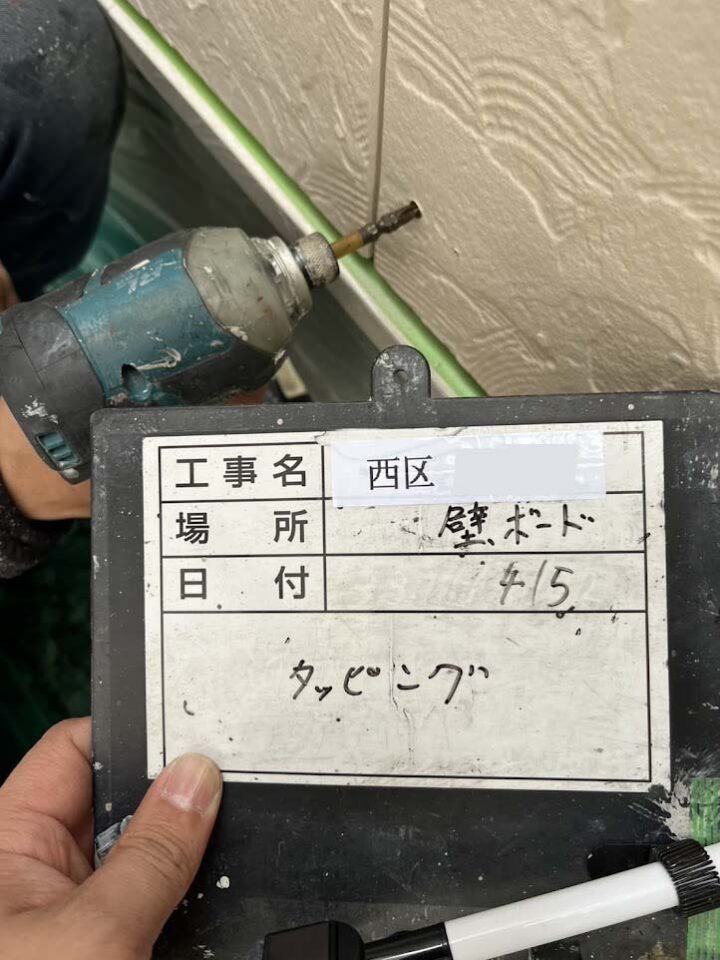 工事名 西区
場所 壁ボード
日付 4/5
タッピング